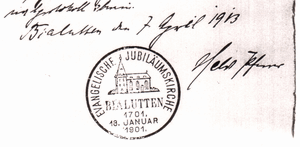 Protokoll
Bialutten den 7 April 1913
Pfarrer
EVANGELISCHE JUBILÄUMSKIRCHE
BIALUTTEN
1701.
18. JANUAR
1901.